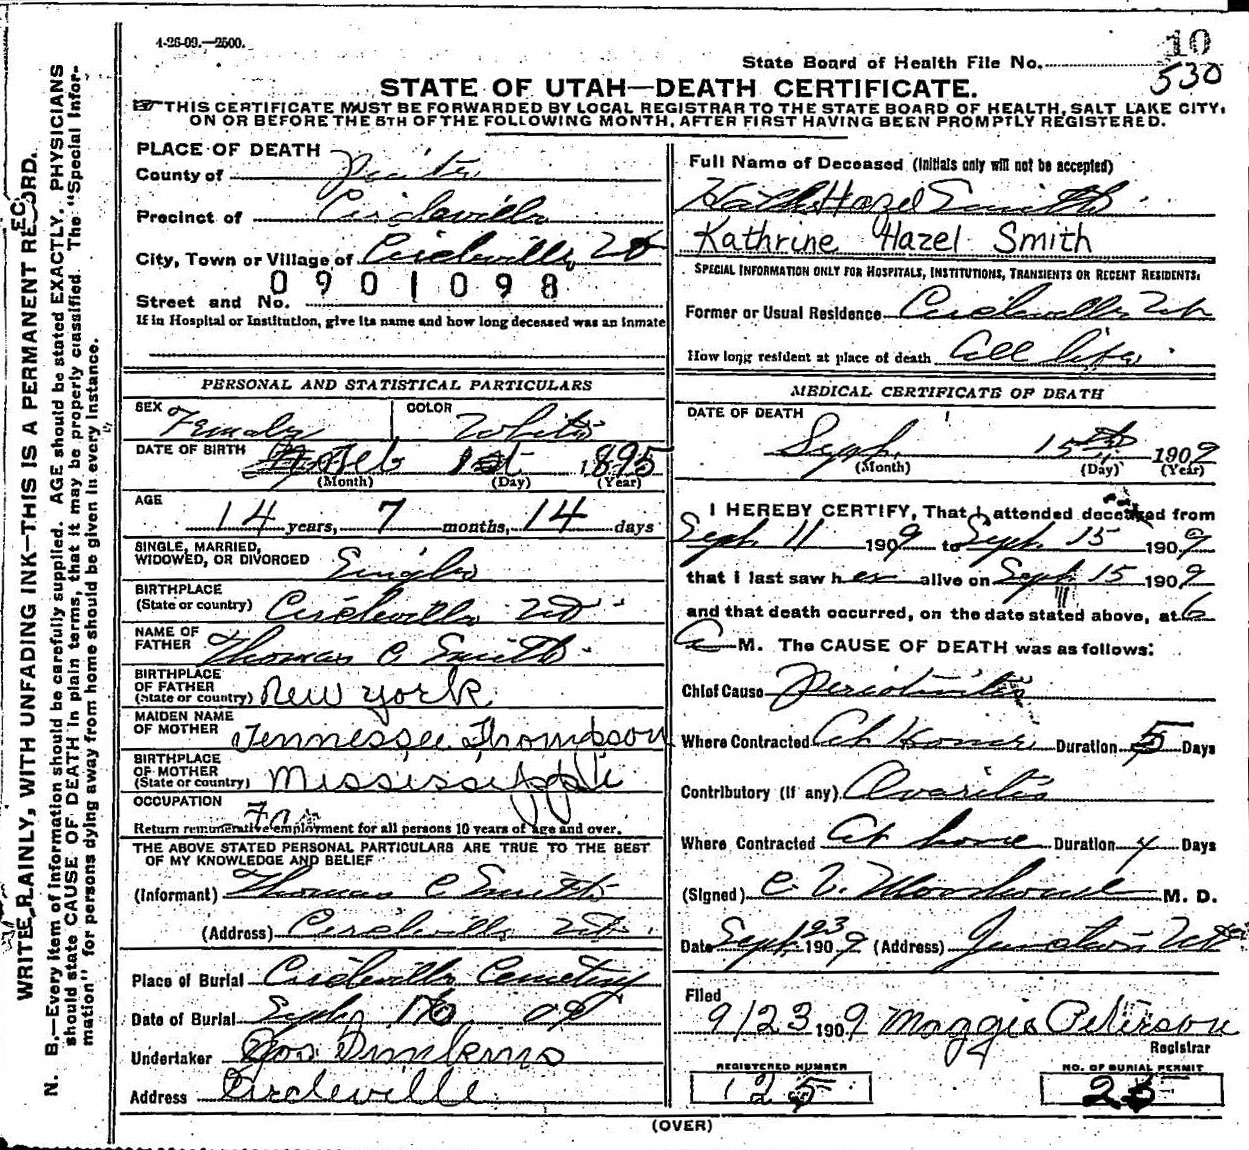 4-26-09.—2500.
10
State Board of Health File No.
530
STATE OF UTAH—DEATH CERTIFICATE.
THIS CERTIFICATE MUST BE FORWARDED BY LOCAL REGISTRAR TO THE STATE BOARD OF HEALTH, SALT LAKE CITY,
ON OR BEFORE THE 5TH OF THE FOLLOWING MONTH, AFTER FIRST HAVING BEEN PROMPTLY REGISTERED.
WRITE PLAINLY, WITH UNFADING INK—THIS IS A PERMANENT RECORD.
N. B.—Every item of information should be carefully supplied. AGE should be stated EXACTLY. PHYSICIANS
should state CAUSE OF DEATH in plain terms, that it may be properly classified. The "Special Infor-
mation" for persons dying away from home should be given in every instance.
PLACE OF DEATH
County of Piute
Precinct of Circleville
City, Town or Village of Circleville Ut
0901098
Street and No.
If in Hospital or Institution, give its name and how long deceased was an inmate
PERSONAL AND STATISTICAL PARTICULARS
SEX Female COLOR White
DATE OF BIRTH Feb 1st 1895
(Month) (Day) (Year)
AGE 14 years, 7 months, 14 days
SINGLE, MARRIED,
WIDOWED, OR DIVORCED Single
BIRTHPLACE
(State or country) Circleville Ut
NAME OF
FATHER Thomas C Smith
BIRTHPLACE
OF FATHER
(State or country) New York
MAIDEN NAME
OF MOTHER Tennessee Thompson
BIRTHPLACE
OF MOTHER
(State or country) Mississippi
OCCUPATION
Return remunerative employment for all persons 10 years of age and over.
THE ABOVE STATED PERSONAL PARTICULARS ARE TRUE TO THE BEST
OF MY KNOWLEDGE AND BELIEF
(Informant) Thomas C Smith
(Address) Circleville Ut.
Place of Burial Circleville Cemetery
Date of Burial Sept 09
Undertaker
Address Circleville
Full Name of Deceased (Initials only will not be accepted)
Hazel Smith
Kathrine Hazel Smith
SPECIAL INFORMATION ONLY FOR HOSPITALS, INSTITUTIONS, TRANSIENTS OR RECENT RESIDENTS:
Former or Usual Residence Circleville Ut
How long resident at place of death All life
MEDICAL CERTIFICATE OF DEATH
DATE OF DEATH
Sept. 15th 1909
(Month) (Day) (Year)
I HEREBY CERTIFY, That I attended deceased from
Sept 11 1909 to Sept 15 1909
that I last saw her alive on Sept. 15 1909
and that death occurred, on the date stated above, at 6
A M. The CAUSE OF DEATH was as follows:
Chief Cause
Where Contracted At Home Duration 5 Days
Contributory (if any) Ovaritis
Where Contracted At home Duration 4 Days
(Signed) M. D.
Date Sept 23 1909 (Address) Junction Utah
Filed
9/23 1909 Maggie Peterson
Registrar
REGISTERED NUMBER
125
NO. OF BURIAL PERMIT
25
(OVER)